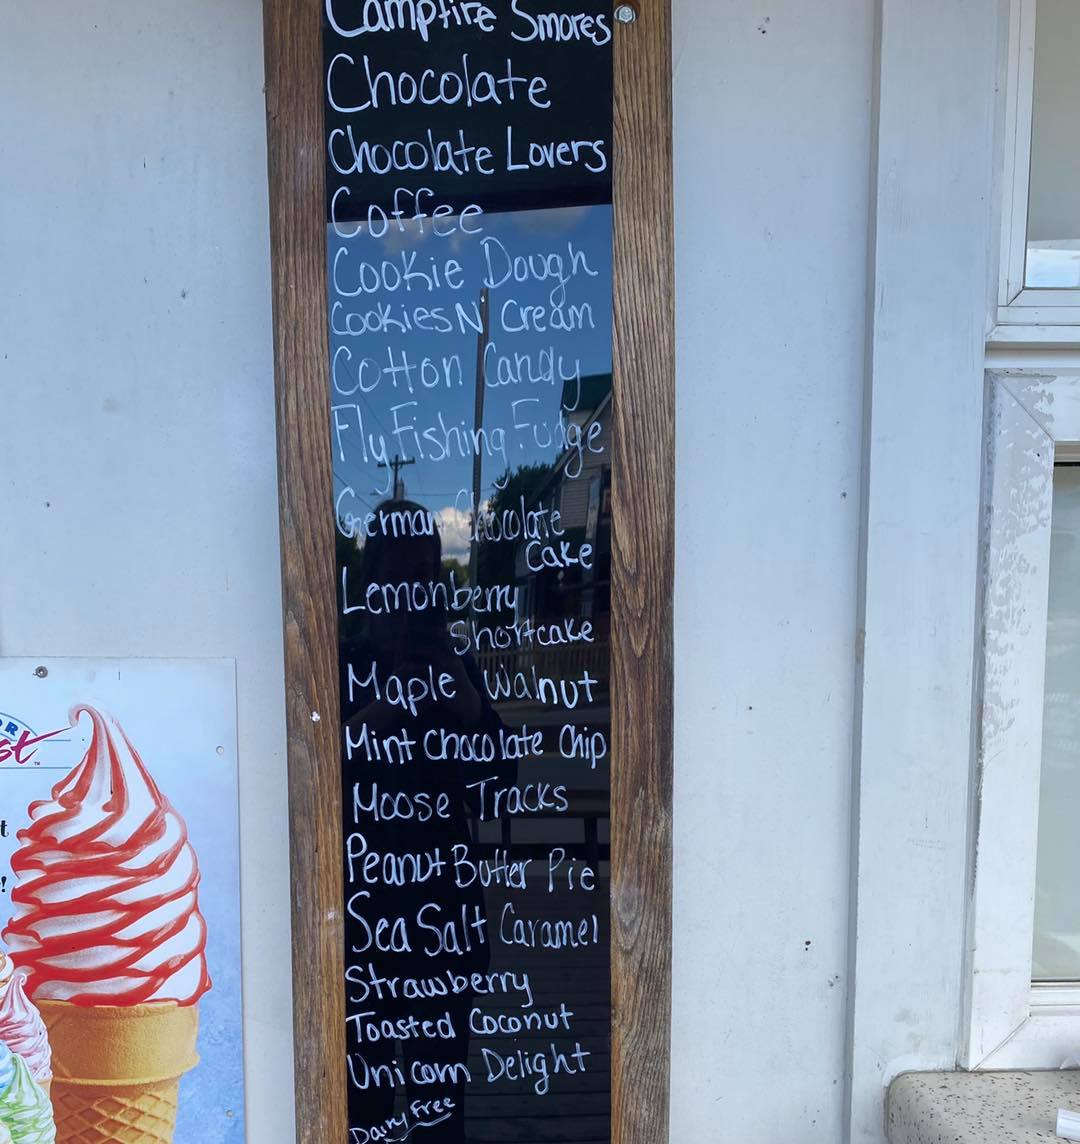 Campfire Smores
Chocolate
Chocolate Lovers
Coffee
Cookie Dough
Cookies N Cream
Cotton Candy
Fly Fishing Fudge
German Chocolate
Cake
Lemonberry
Shortcake
Maple Walnut
Mint Chocolate Chip
Moose Tracks
Peanut Butter Pie
Sea Salt Caramel
Strawberry
Toasted Coconut
Unicorn Delight
Dairy Free